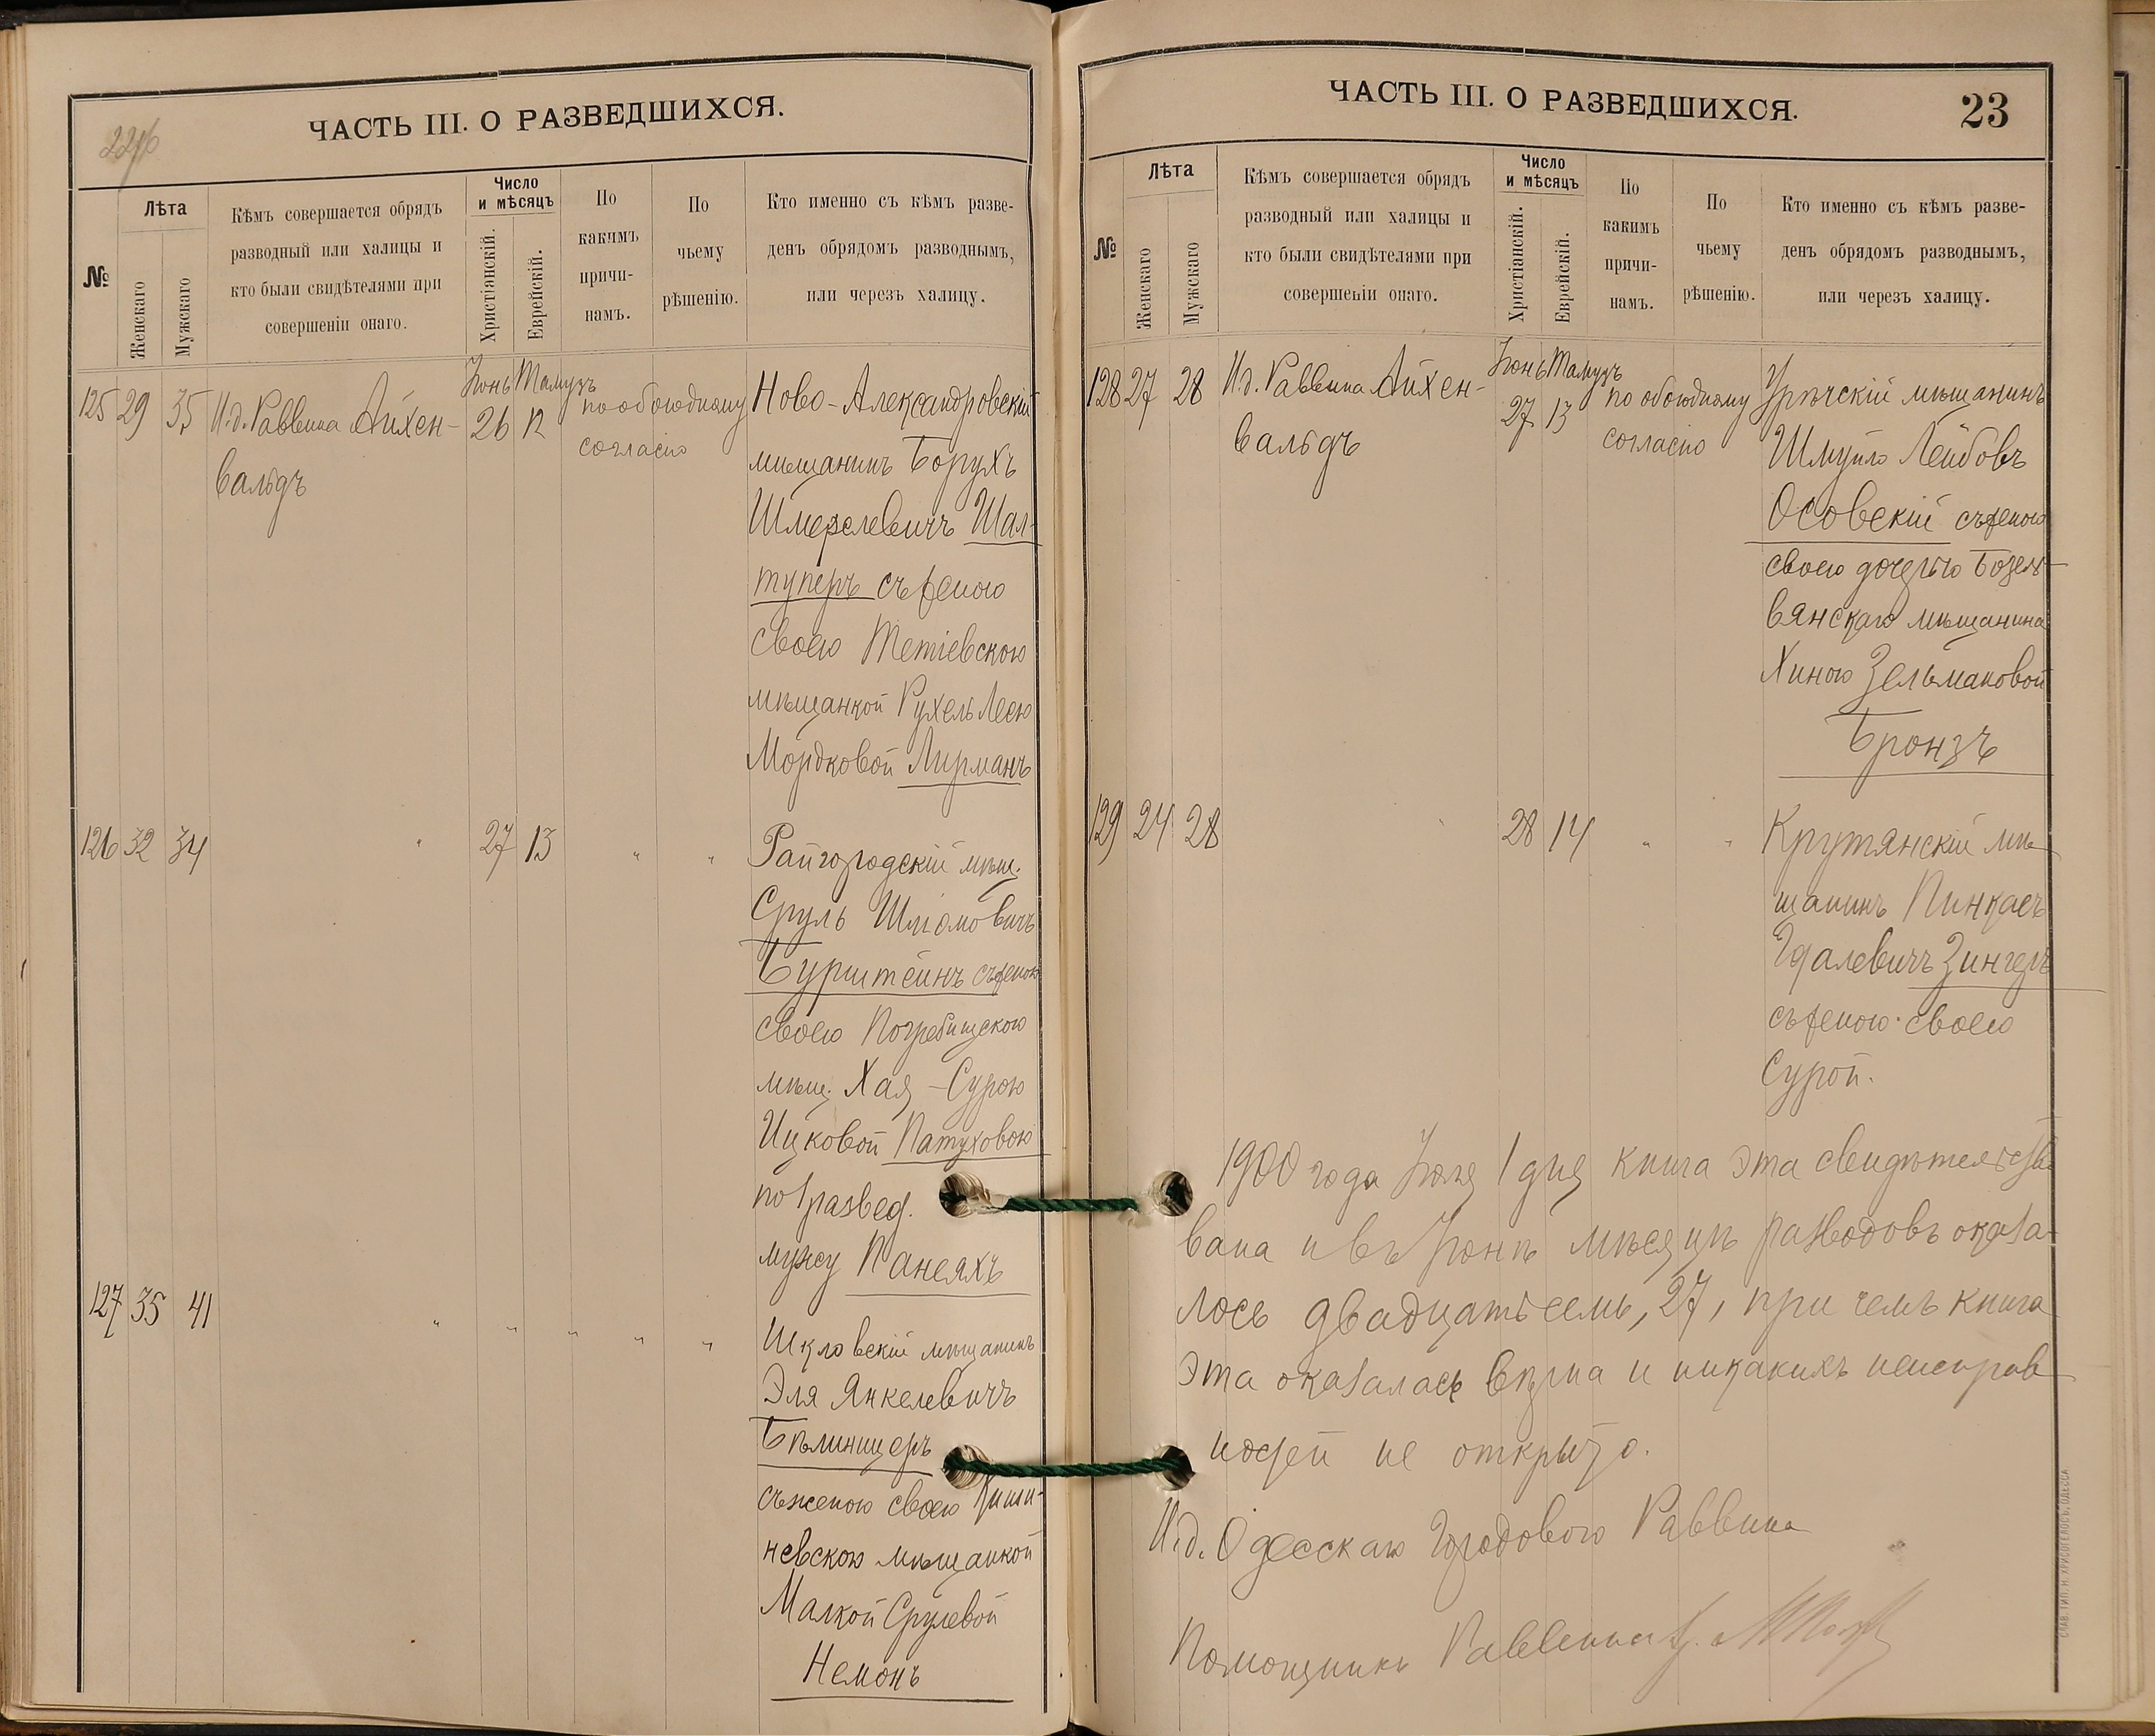 ЧАСТЬ III. О РАЗВЕДШИХСЯ.
№
Лѣта
Женскаго
Мужскаго
Кѣмъ совершается обрядъ
разводный или халицы и
кто были свидѣтелями при
совершеніи онаго.
Число
и мѣсяцъ
Христіанскій.
Еврейскій.
По
какимъ
причи-
намъ.
По
чьему
рѣшенію.
Кто именно съ кѣмъ разве-
денъ обрядомъ разводнымъ,
или через халицу.
125 29 35 И.д. Раввина Айхен-
вальдъ
Іюнь Тамузъ
26 12
по обоюдному
согласію
Ново-Александровскій
мѣщанинъ Борухъ
Шмерелевичъ Шал-
туперъ съ женою
своею Тетіевскою
мѣщанкой Рухель Леею
Мордковой Лирманъ
126 32 34 " 27 13 " "
Райгородскій мѣщ.
Сруль Шліомовичъ
Бурштейнъ съ женою
своею Погребищскою
мѣщ. Хая-Сурою
Ицковой Патуховою
по 1 развед.
мужу Панеяхъ
127 35 41 " " " " "
Шкловскій мѣщанинъ
Эля Янкелевичъ
Бѣлиницеръ
съ женою своею Киши-
невскою мѣщанкой
Малкой Срулевой
Немонъ
ЧАСТЬ III. О РАЗВЕДШИХСЯ.
23
№
Лѣта
Женскаго
Мужскаго
Кѣмъ совершается обрядъ
разводный или халицы и
кто были свидѣтелями при
совершеніи онаго.
Число
и мѣсяцъ
Христіанскій.
Еврейскій.
По
какимъ
причи-
намъ.
По
чьему
рѣшенію.
Кто именно съ кѣмъ разве-
денъ обрядомъ разводнымъ,
или черезъ халицу.
128 27 28 И.д. Раввина Айхен-
вальдъ
Іюнь Тамузъ
27 13
по обоюдному
согласію
Урѣчскій мѣщанинъ
Шмуйло Лейбовъ
Осовскій съ женою
своею дочерью Бозеля-
вянскаго мѣщанина
Хиною Зельмановой
Бронзъ
129 24 28 " 28 14 " "
Крутянскій мѣ-
щанинъ Пинкасъ
Гдалевичъ Зингеръ
съ женою своею
Сурой.
1900 года Іюля 1 дня книга эта свидѣтельство-
вана и въ Іюнѣ мѣсяцѣ разводовъ оказа-
лось двадцать семь, 27, при чемъ книга
эта оказалась вѣрна и никакихъ неисправ-
ностей не открыто.
И.д. Одесскаго Городового Раввина
Помощникъ Раввина
СЛАВ. ТИП. Н. ХРИСОГЕЛОСЪ, ОДЕССА